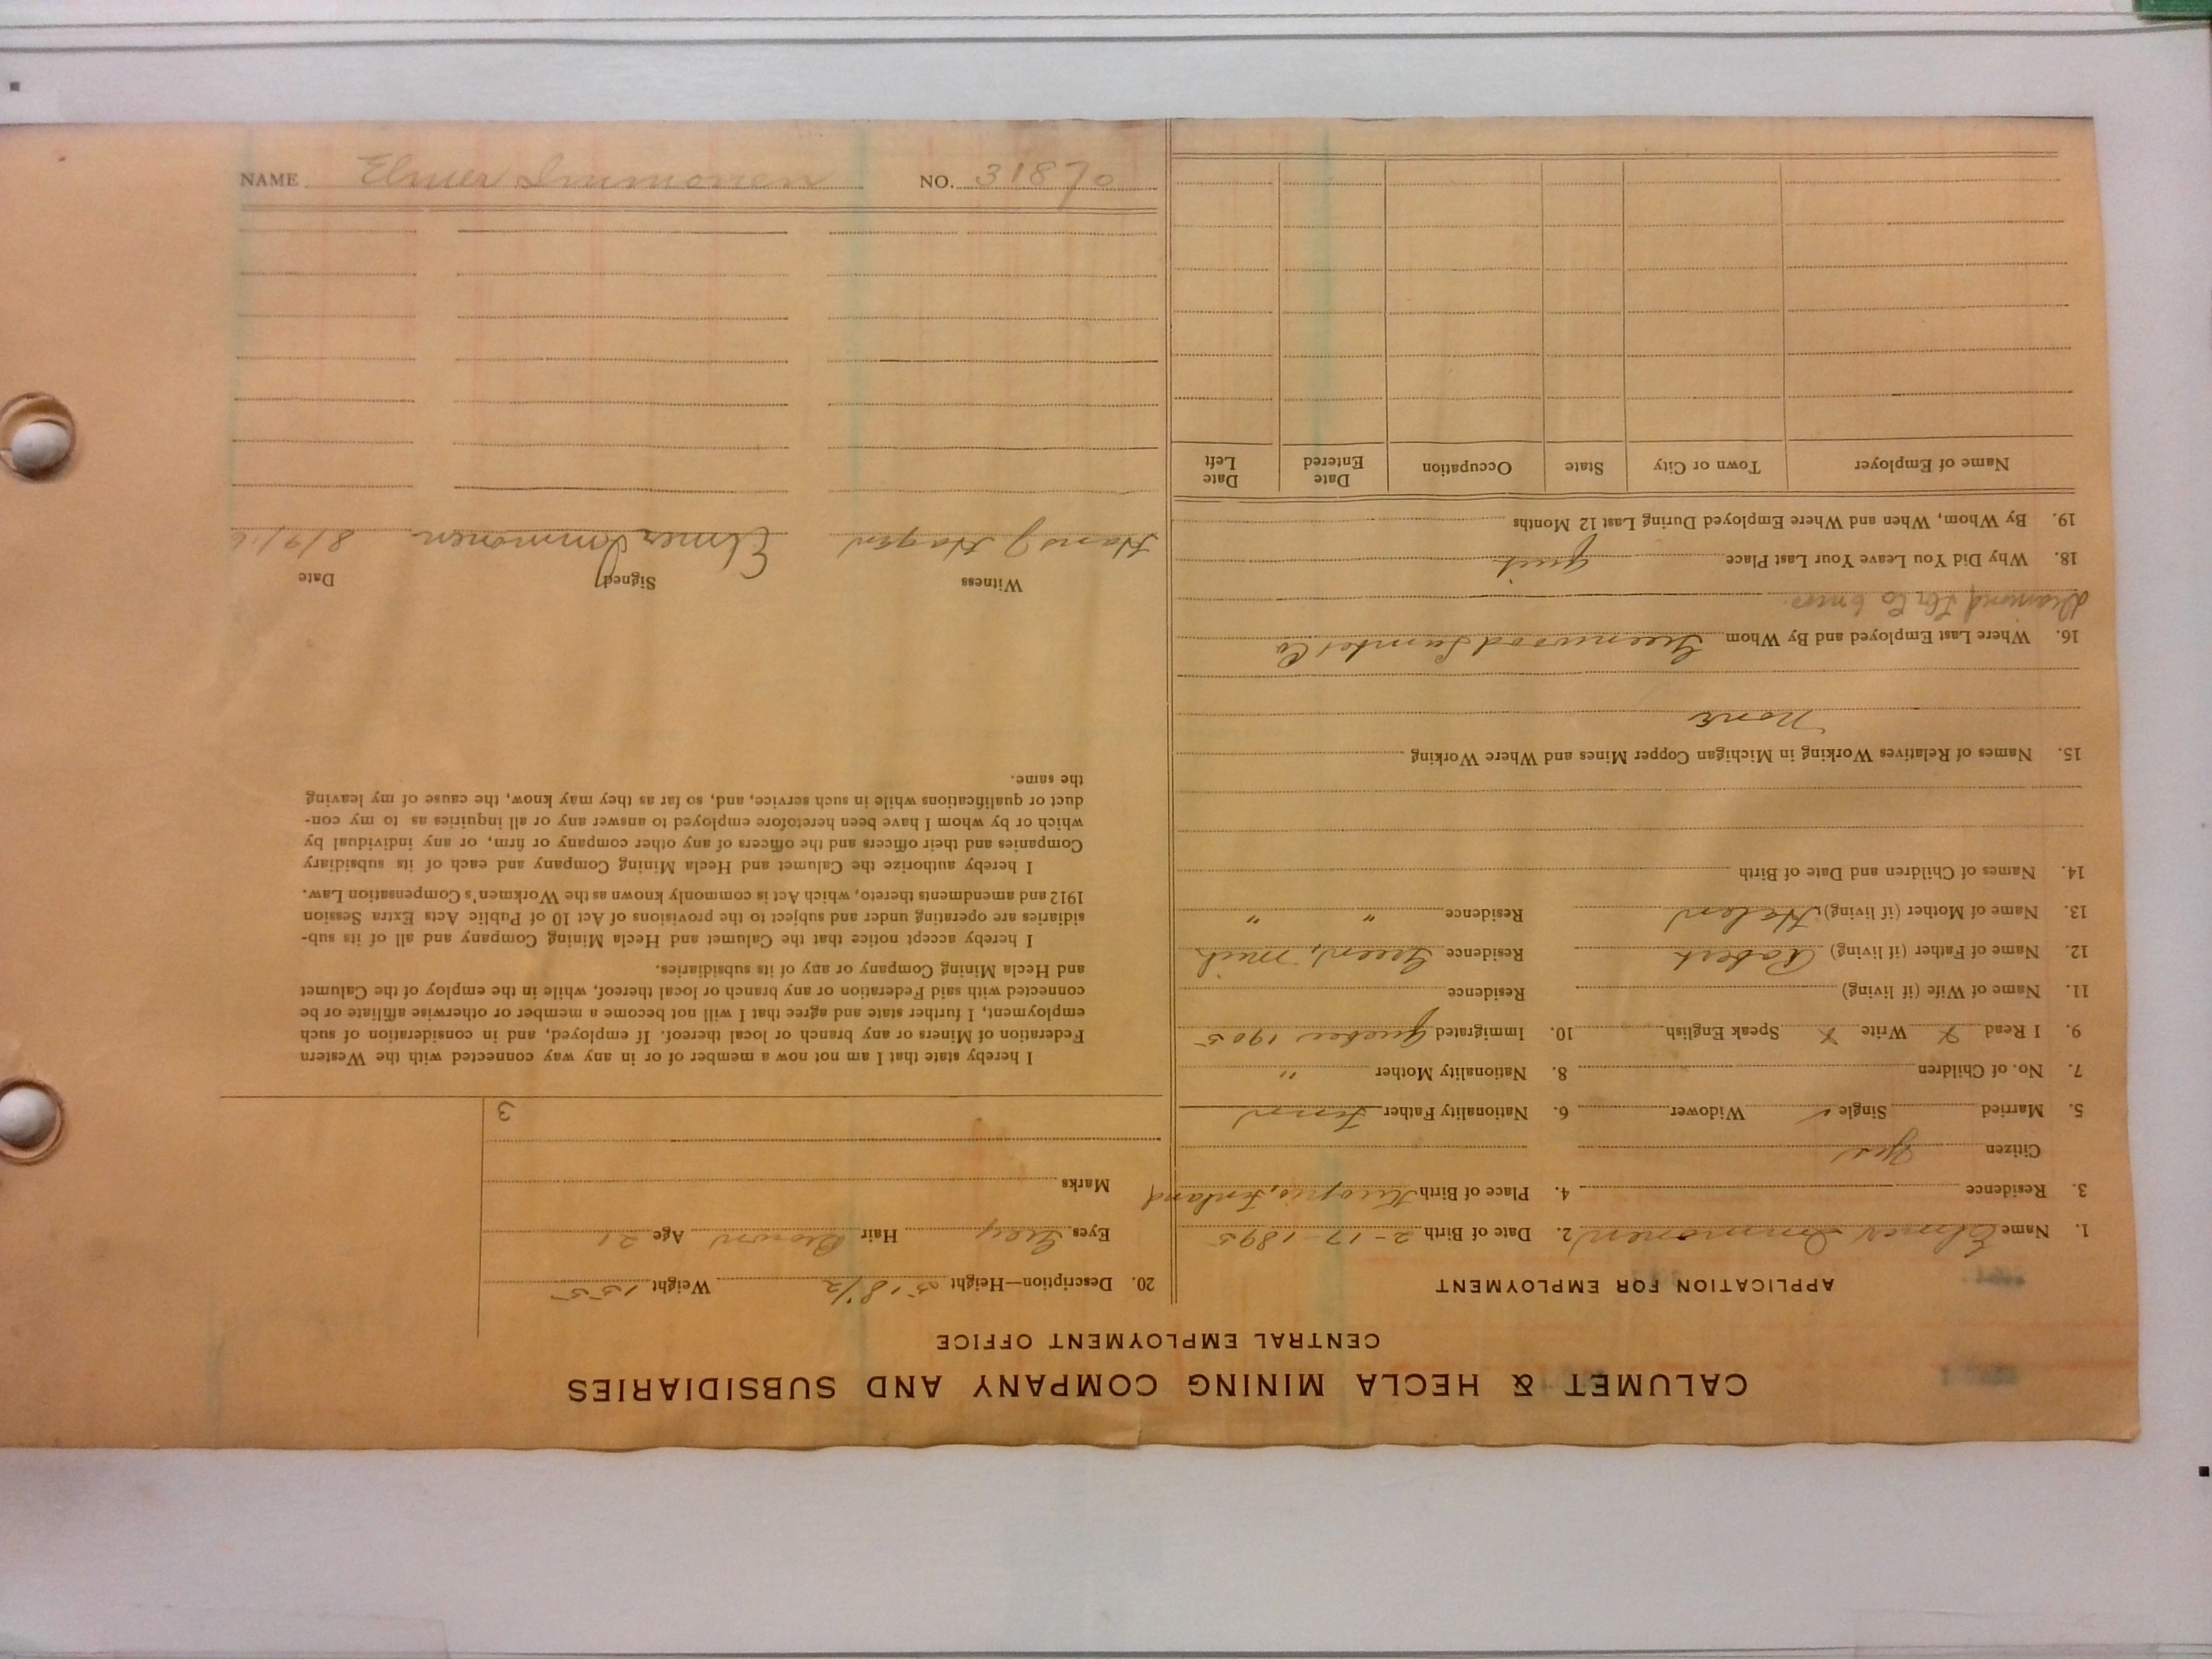 CALUMET & HECLA MINING COMPANY AND SUBSIDIARIES
CENTRAL EMPLOYMENT OFFICE
APPLICATION FOR EMPLOYMENT
1. Name Elmer Immonen 2. Date of Birth 2-17-1895
3. Residence 4. Place of Birth Kuopio, Finland
Citizen Yes
5. Married Single ✓ Widower 6. Nationality Father Finn
7. No. of Children 8. Nationality Mother "
9. I Read X Write X Speak English 10. Immigrated Quebec 1905
11. Name of Wife (if living) Residence
12. Name of Father (if living) Robert Residence Green, Mich
13. Name of Mother (if living) Helen Residence " "
14. Names of Children and Date of Birth
15. Names of Relatives Working in Michigan Copper Mines and Where Working
None
16. Where Last Employed and By Whom Greenwood Lumber Co
Diamond Lbr Co 6 mos
18. Why Did You Leave Your Last Place quit
19. By Whom, When and Where Employed During Last 12 Months
Name of Employer Town or City State Occupation Date Entered Date Left
20. Description—Height 5' 8 1/2 Weight 155
Eyes Grey Hair Brown Age 21
Marks
3
I hereby state that I am not now a member of or in any way connected with the Western
Federation of Miners or any branch or local thereof. If employed, and in consideration of such
employment, I further state and agree that I will not become a member or otherwise affiliate or be
connected with said Federation or any branch or local thereof, while in the employ of the Calumet
and Hecla Mining Company or any of its subsidiaries.
I hereby accept notice that the Calumet and Hecla Mining Company and all of its sub-
sidiaries are operating under and subject to the provisions of Act 10 of Public Acts Extra Session
1912 and amendments thereto, which Act is commonly known as the Workmen's Compensation Law.
I hereby authorize the Calumet and Hecla Mining Company and each of its subsidiary
Companies and their officers and the officers of any other company or firm, or any individual by
which or by whom I have been heretofore employed to answer any or all inquiries as to my con-
duct or qualifications while in such service, and, so far as they may know, the cause of my leaving
the same.
Witness Signed Date
Hans J Hagen Elmer Immonen 8/9/16
NAME Elmer Immonen NO. 31870